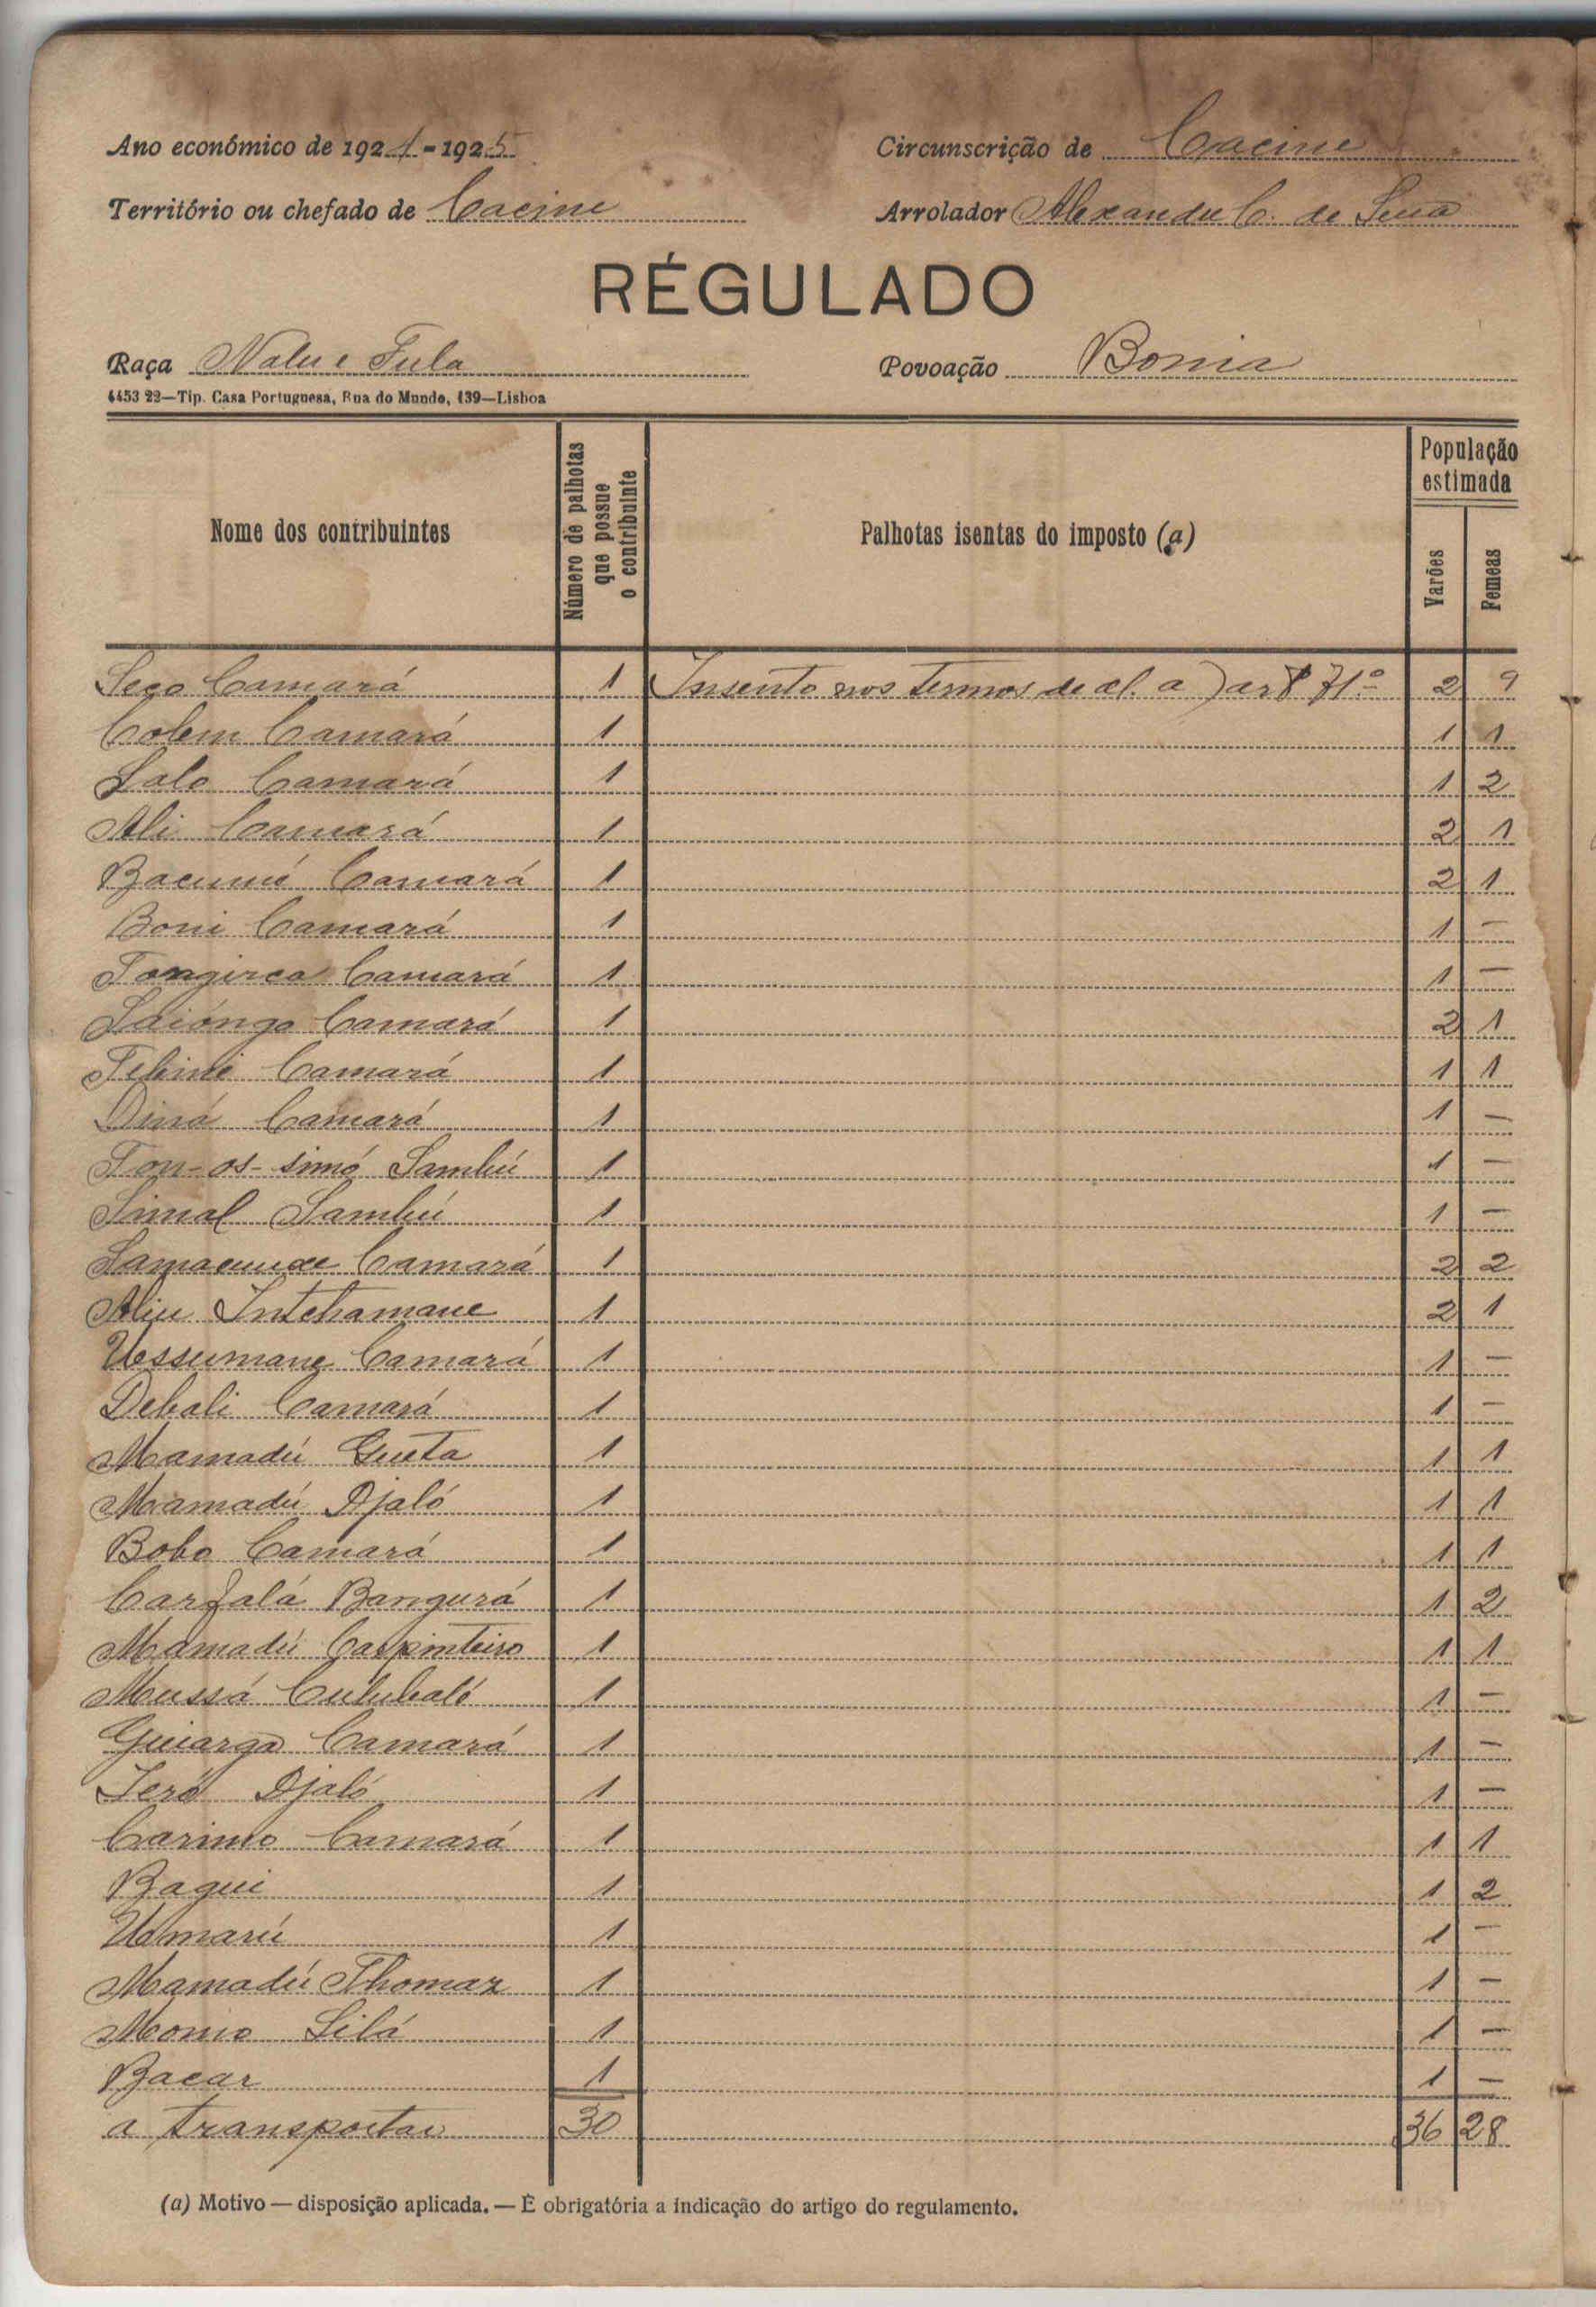 Ano económico de 1924-1925 Circunscrição de Cacine
Território ou chefado de Cacine Arrolador Alexandre C. de Sena
RÉGULADO
Raça Nalu e Fula Povoação Bonia
4453 22—Tip. Casa Portuguesa, Rua do Mundo, 139—Lisboa
Nome dos contribuintes Número de palhotas que possue o contribuinte Palhotas isentas do imposto (a) População estimada Varões Femeas
Seco Camará 1 Insento nos termos de al. a) art 71º 2 9
Colem Camará 1 1 1
Lalo Camará 1 1 2
Ali Camará 1 2 1
Bacumé Camará 1 2 1
Boni Camará 1 1 —
Camará 1 1 —
Saiongo Camará 1 2 1
Camará 1 1 1
Diná Camará 1 1 —
Ton-os-simó Sambú 1 1 —
Simal Sambú 1 1 —
Camará 1 2 2
Aliu Intchamane 1 2 1
Ussumane Camará 1 1 —
Debali Camará 1 1 —
Mamadú Gueta 1 1 1
Mamadú Djaló 1 1 1
Bobo Camará 1 1 1
Carfalá Bangurá 1 1 2
Mamadú Carpinteiro 1 1 1
Mussá Culubali 1 1 —
Camará 1 1 —
Djaló 1 1 —
Carimo Camará 1 1 1
Bagui 1 1 2
Umarú 1 1 —
Mamadú Thomaz 1 1 —
Momo Silá 1 1 —
Bacar 1 1 —
a transportar 30 36 28
(a) Motivo — disposição aplicada. — É obrigatória a indicação do artigo do regulamento.